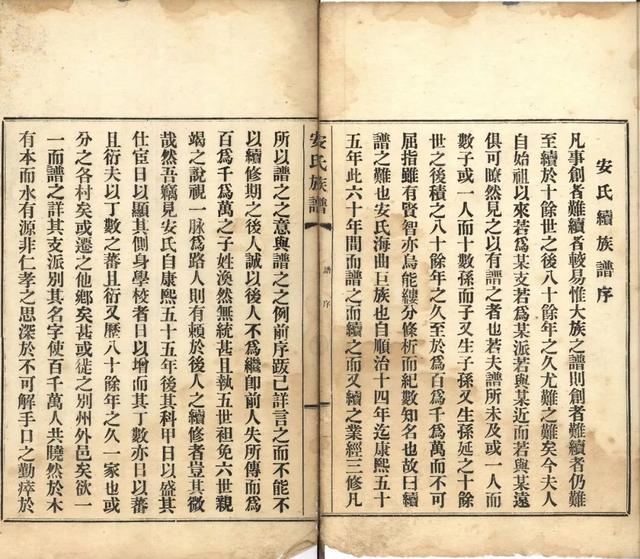 安氏續族譜序
凡事創者難續者較易惟大族之譜則創者難續者仍難
至續於十餘世之後八十餘年之久尤難之難矣今夫人
自始祖以來若為某支若為某派若與某近而若與某遠
俱可瞭然見之以有譜之者也若夫譜所未及或一人而
數子或一人而十數孫而子又生子孫又生孫延之十餘
世之後積之八十餘年之久至於為百為千為萬而不可
屈指雖有賢智亦烏能縷分條析而紀數知名也故曰續
譜之難也安氏海曲巨族也自順治十四年迄康熙五十
五年此六十年間而譜之而續之而又續之業經三修凡
安氏族譜
譜序
所以譜之之意與譜之之例前序跋已詳言之而不能不
以續修期之後人誠以後人不為繼卽前人失所傳而為
百為千為萬之子姓渙然無統甚且執五世祖免六世親
竭之說視一脉為路人則有賴於後人之續修者豈其微
哉然吾竊見安氏自康熙五十五年後其科甲日以盛其
仕宦日以顯其側身學校者日以增而其丁數亦日以蕃
且衍夫以丁數之蕃且衍又歷八十餘年之久一家也或
分之各村矣或遷之他鄉矣甚或徙之別州外邑矣欲一
一而譜之詳其支派別其名字使百千萬人共曉然於木
有本而水有源非仁孝之思深於不可解手口之勤瘁於